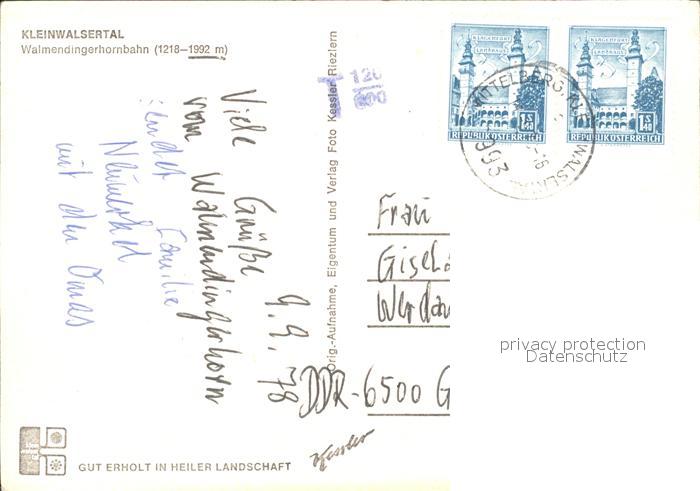 KLEINWALSERTAL
Walmendingerhornbahn (1218–1992 m)
Viele Grüße
vom Walmendingerhorn
9.9.78
sendet Familie
mit den Omas
Orig.-Aufnahme, Eigentum und Verlag Foto Kessler Riezlern
120
KLAGENFURT
LANDHAUS
1 S 40
REPUBLIK ÖSTERREICH
KLAGENFURT
LANDHAUS
1 S 40
REPUBLIK ÖSTERREICH
MITTELBERG, KLEINWALSERTAL
993
Frau
Gisel
Werdau
DDR-6500 G
privacy protection
Datenschutz
Kessler
GUT ERHOLT IN HEILER LANDSCHAFT